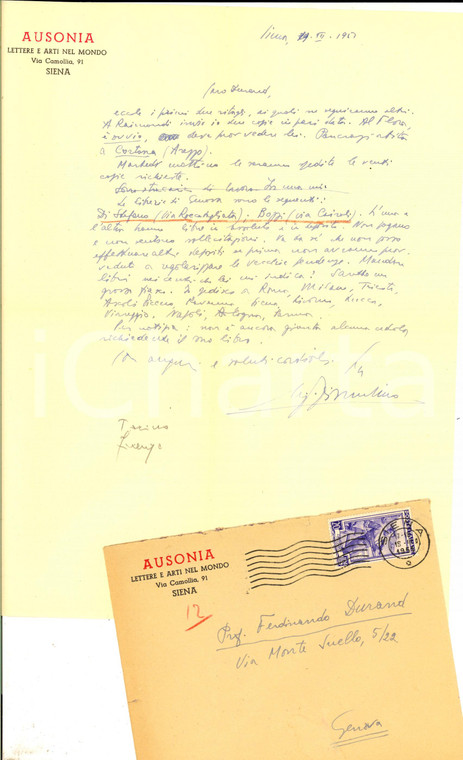 AUSONIA
LETTERE E ARTI NEL MONDO
Via Camollia, 91
SIENA
Siena, 14. XII. 1951
Caro Durand,
eccole i primi due ritagli, ai quali ne seguiranno altri.
A Raimondi invio le due copie in pari data. Al Flora,
è ovvio, deve provvedere lei. Pancrazi abita
a Cortona (Arezzo).
Martedì mattina le saranno spedite le venti
copie richieste.
Le librerie di Genova sono le seguenti:
Di Stefano (via Roccatagliata); Bozzi (via Cairoli). L'una e
l'altra hanno libri in assoluto e in deposito. Non pagano
e non
effettuare altri depositi se prima non avranno prov-
veduto a le vecchie pendenze. Mandare
libri che lei mi indica? Sarebbe un
grosso Si vedrà a Roma, Milano, Trieste,
Ascoli Piceno, Ravenna, Siena, Livorno, Lucca,
Viareggio, Napoli, Bologna, Parma.
Per notizia: non è ancora giunta alcuna cedola
richiedente il suo libro.
auguri e saluti cordiali.
Luigi Fiorentino
Torino
Firenze
iCharta
AUSONIA
LETTERE E ARTI NEL MONDO
Via Camollia, 91
SIENA
12
Prof. Ferdinando Durand
Via Monte Suello, 5/22
Genova